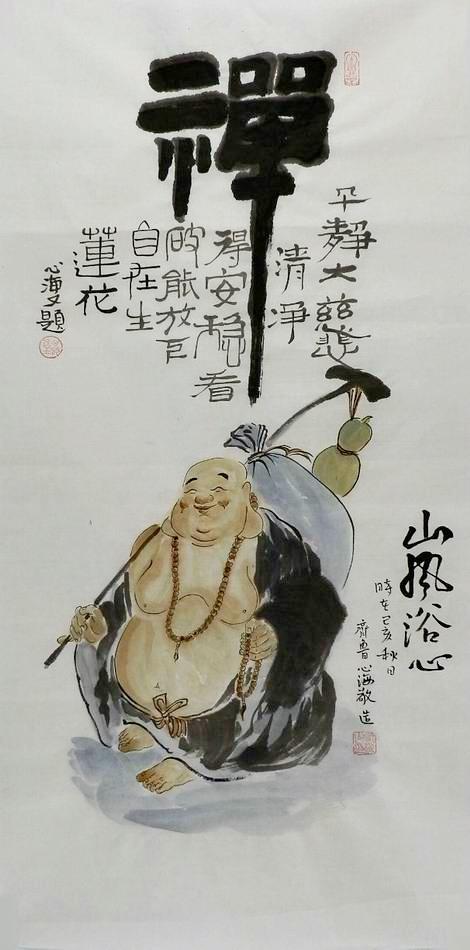 禪
平靜大慈悲
清净
得安穩看
破能放
自在生
蓮花
心海又題
山風浴心
時在己亥秋日
齊魯心海敬造